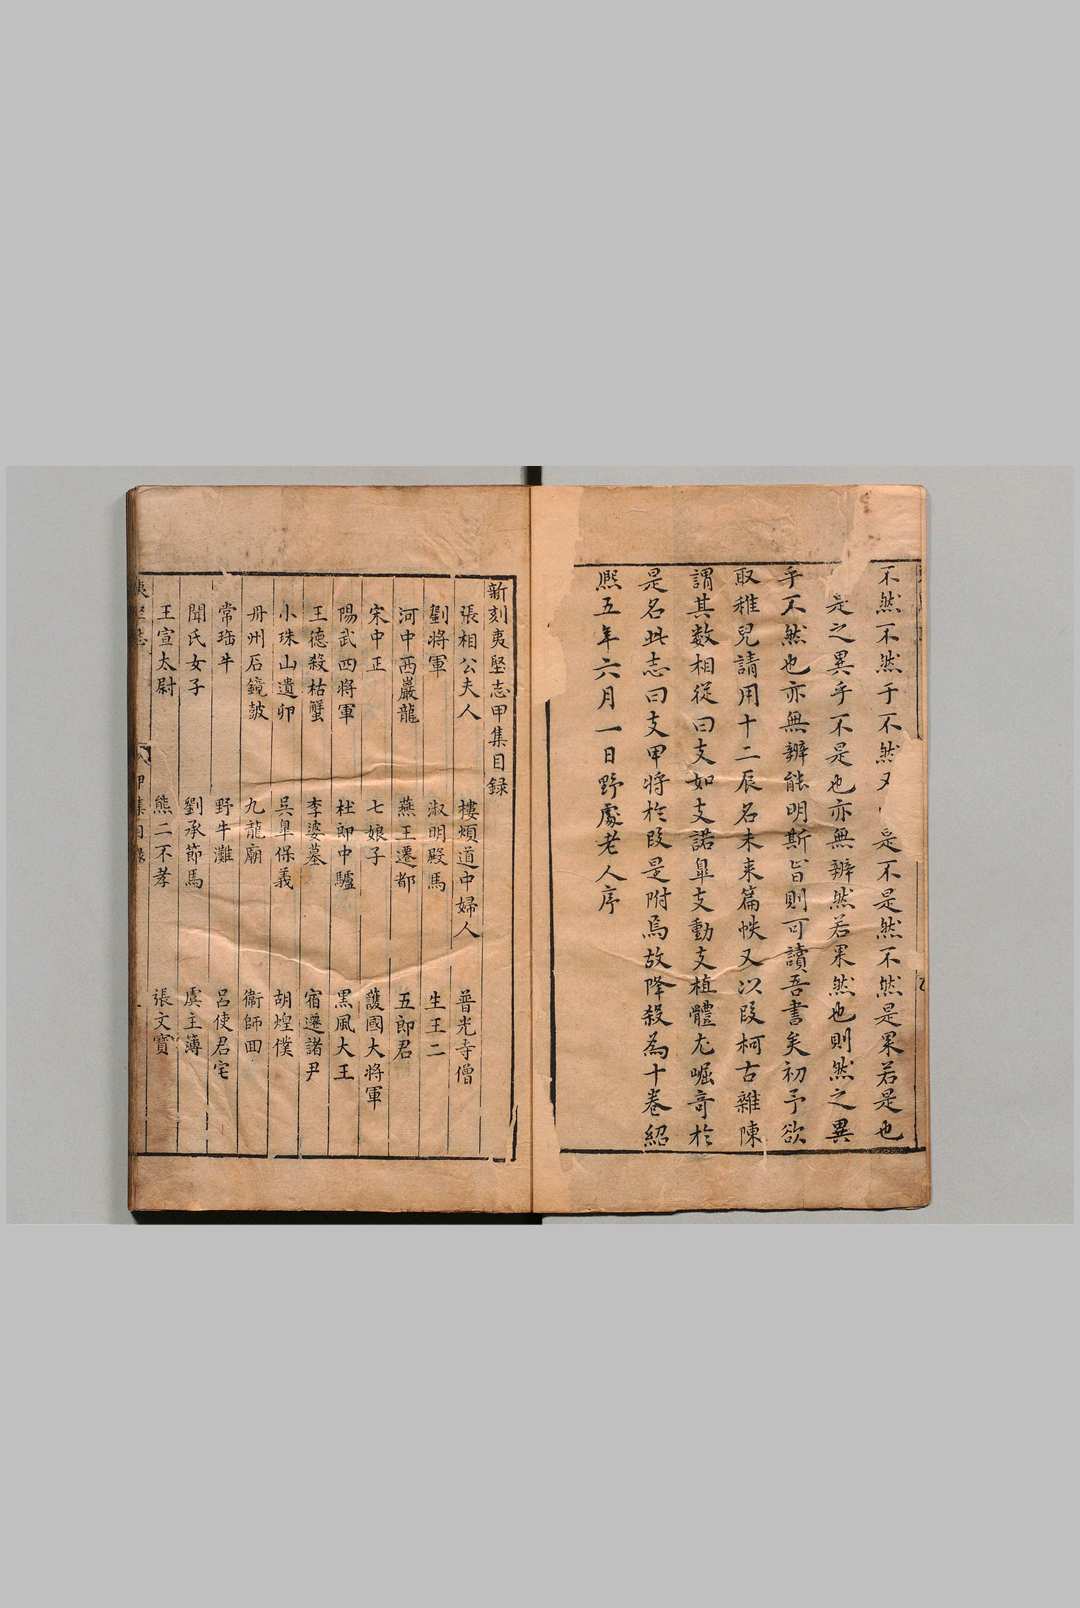 不然不然于不然 是不是然不然是果若是也
是之異乎不是也亦無辨然若果然也則然之異
乎不然也亦無辨能明斯旨則可讀吾書矣初予欲
取稚兒請用十二辰名未来篇帙又以段柯古雜陳
謂其數相從曰支如支諾皐支動支植體尤崛奇於
是名此志曰支甲將於段是附焉故降殺為十卷紹
熈五年六月一日野處老人序
新刻夷堅志甲集目録
張相公夫人 樓煩道中婦人 普光寺僧
劉將軍 淑明殿馬 生王二
河中西巖龍 燕王遷都 五郎君
宋中正 七娘子 護國大將軍
陽武四將軍 杜郎中驢 黒風大王
王德殺枯蟹 李婆墓 宿遷諸尹
小珠山遺卵 呉皐保義 胡煌僕
丹州石鏡皷 九龍廟 衞師回
常瑎牛 野牛灘 呂使君宅
聞氏女子 劉承節馬 虞主薄
王宣太尉 熊二不孝 張文寶
夷堅志 甲集目録